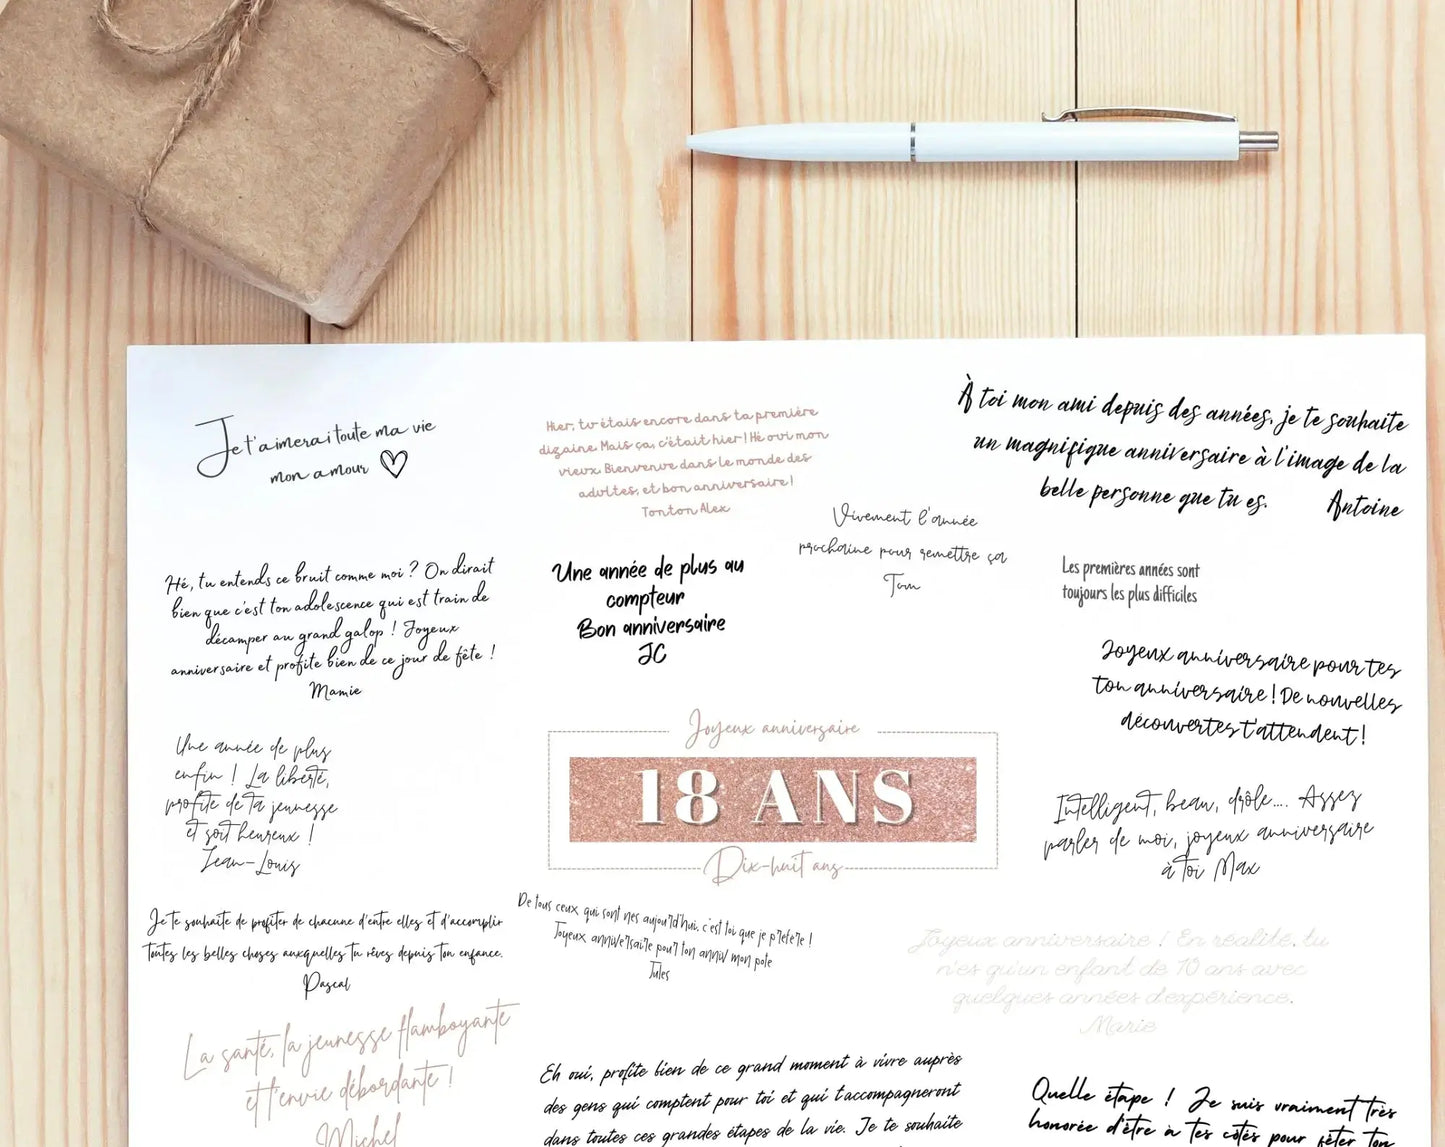 Je t'aimerai toute ma vie
mon amour
Hier, tu étais encore dans ta première
dizaine. Mais ça, c'était hier ! Hé oui mon
vieux. Bienvenue dans le monde des
adultes, et bon anniversaire !
Tonton Alex
À toi mon ami depuis des années, je te souhaite
un magnifique anniversaire à l'image de la
belle personne que tu es.
Antoine
Vivement l'année
prochaine pour remettre ça
Tom
Hé, tu entends ce bruit comme moi ? On dirait
bien que c'est ton adolescence qui est train de
décamper au grand galop ! Joyeux
anniversaire et profite bien de ce jour de fête !
Mamie
Une année de plus au
compteur
Bon anniversaire
JC
Les premières années sont
toujours les plus difficiles
Joyeux anniversaire pour tes
ton anniversaire ! De nouvelles
découvertes t'attendent !
Une année de plus
enfin ! La liberté,
profite de ta jeunesse
et soit heureux !
Jean-Louis
Joyeux anniversaire
18 ANS
Dix-huit ans
Intelligent, beau, drôle.... Assez
parler de moi, joyeux anniversaire
à toi Max
Je te souhaite de profiter de chacune d'entre elles et d'accomplir
toutes les belles choses auxquelles tu rêves depuis ton enfance.
Pascal
De tous ceux qui sont nes aujourd'hui, c'est toi que je préfère !
Joyeux anniversaire pour ton anniv mon pote
Jules
Joyeux anniversaire ! En réalité, tu
n'es qu'un enfant de 10 ans avec
quelques années d'expérience.
Marie
La santé, la jeunesse flamboyante
et l'envie débordante !
Michel
Eh oui, profite bien de ce grand moment à vivre auprès
des gens qui comptent pour toi et qui t'accompagneront
dans toutes ces grandes étapes de la vie. Je te souhaite
Quelle étape ! Je suis vraiment très
honorée d'être à tes côtés pour fêter ton